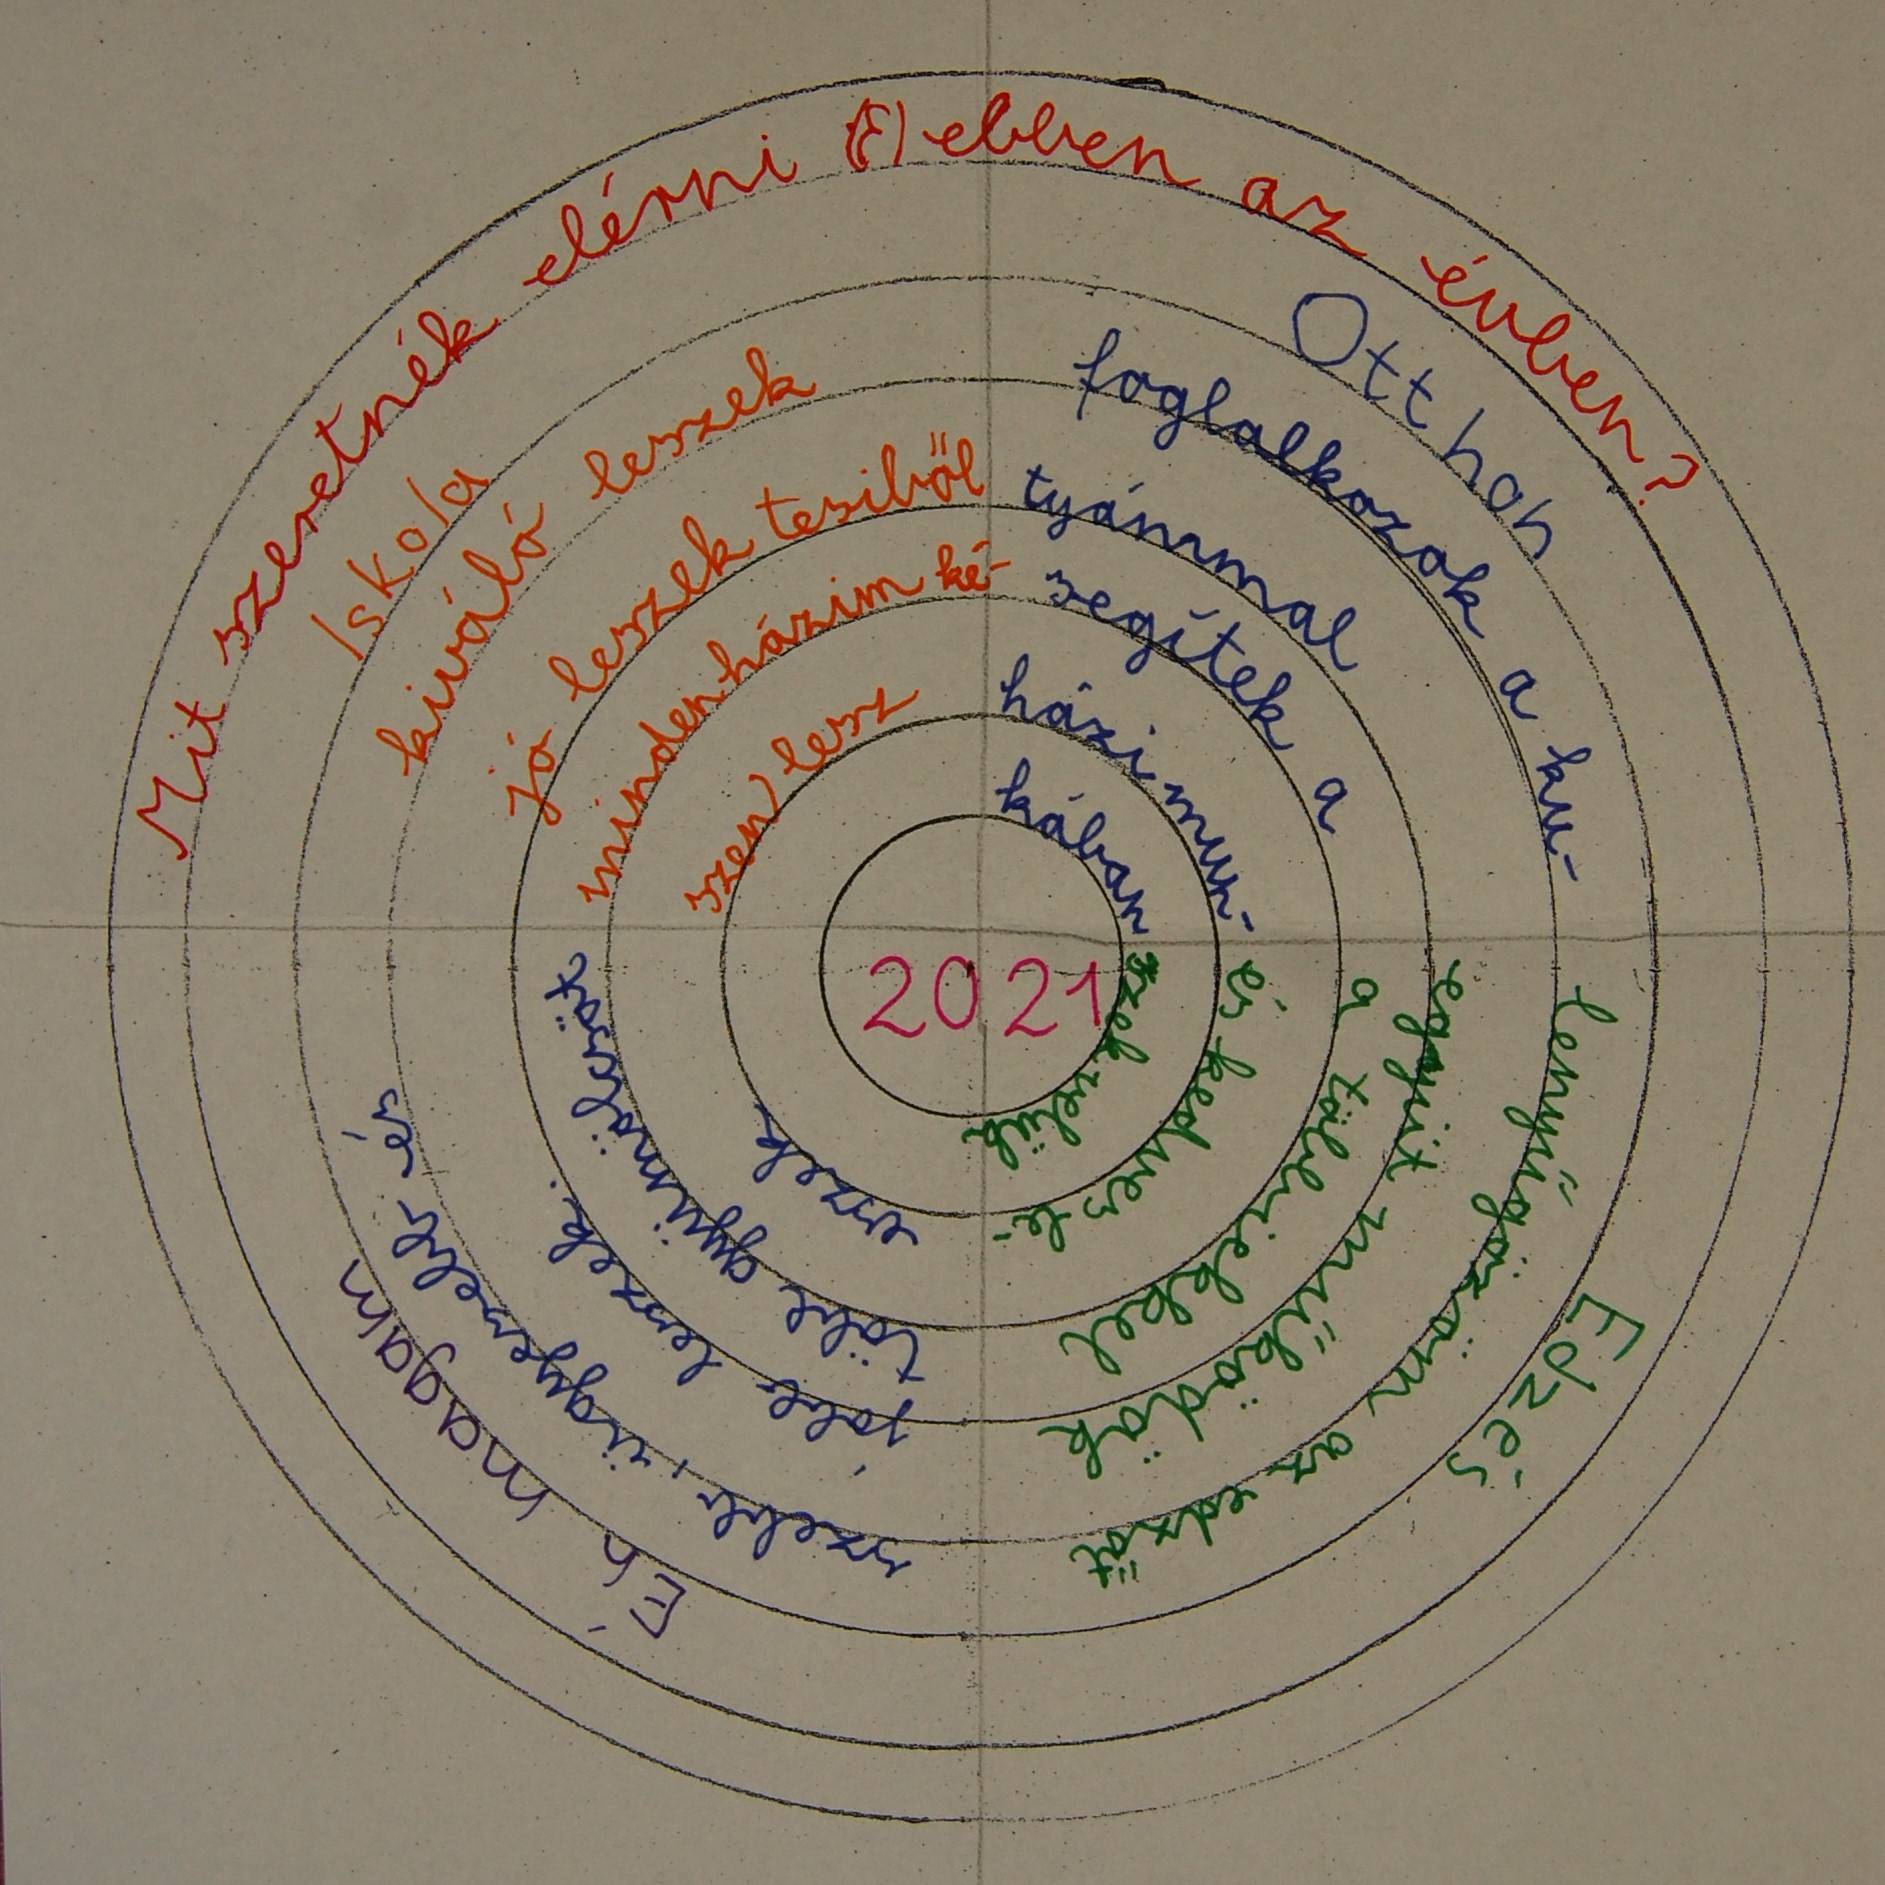 Mit szeretnék elérni (É) ebben az évben?
Iskola
kiváló leszek
jó leszek tesiből
minden házim ké-
szen lesz
Otthon
foglalkozok a ku-
tyámmal
segítek a
házimun-
kában
Edzés
lenyűgözöm az edzőt
együt működök
a többiekkel
és kedves le-
szek velük
Én magam
szebb, ügyesebb és
jobb leszek.
több gyümölcsöt
eszek
2021